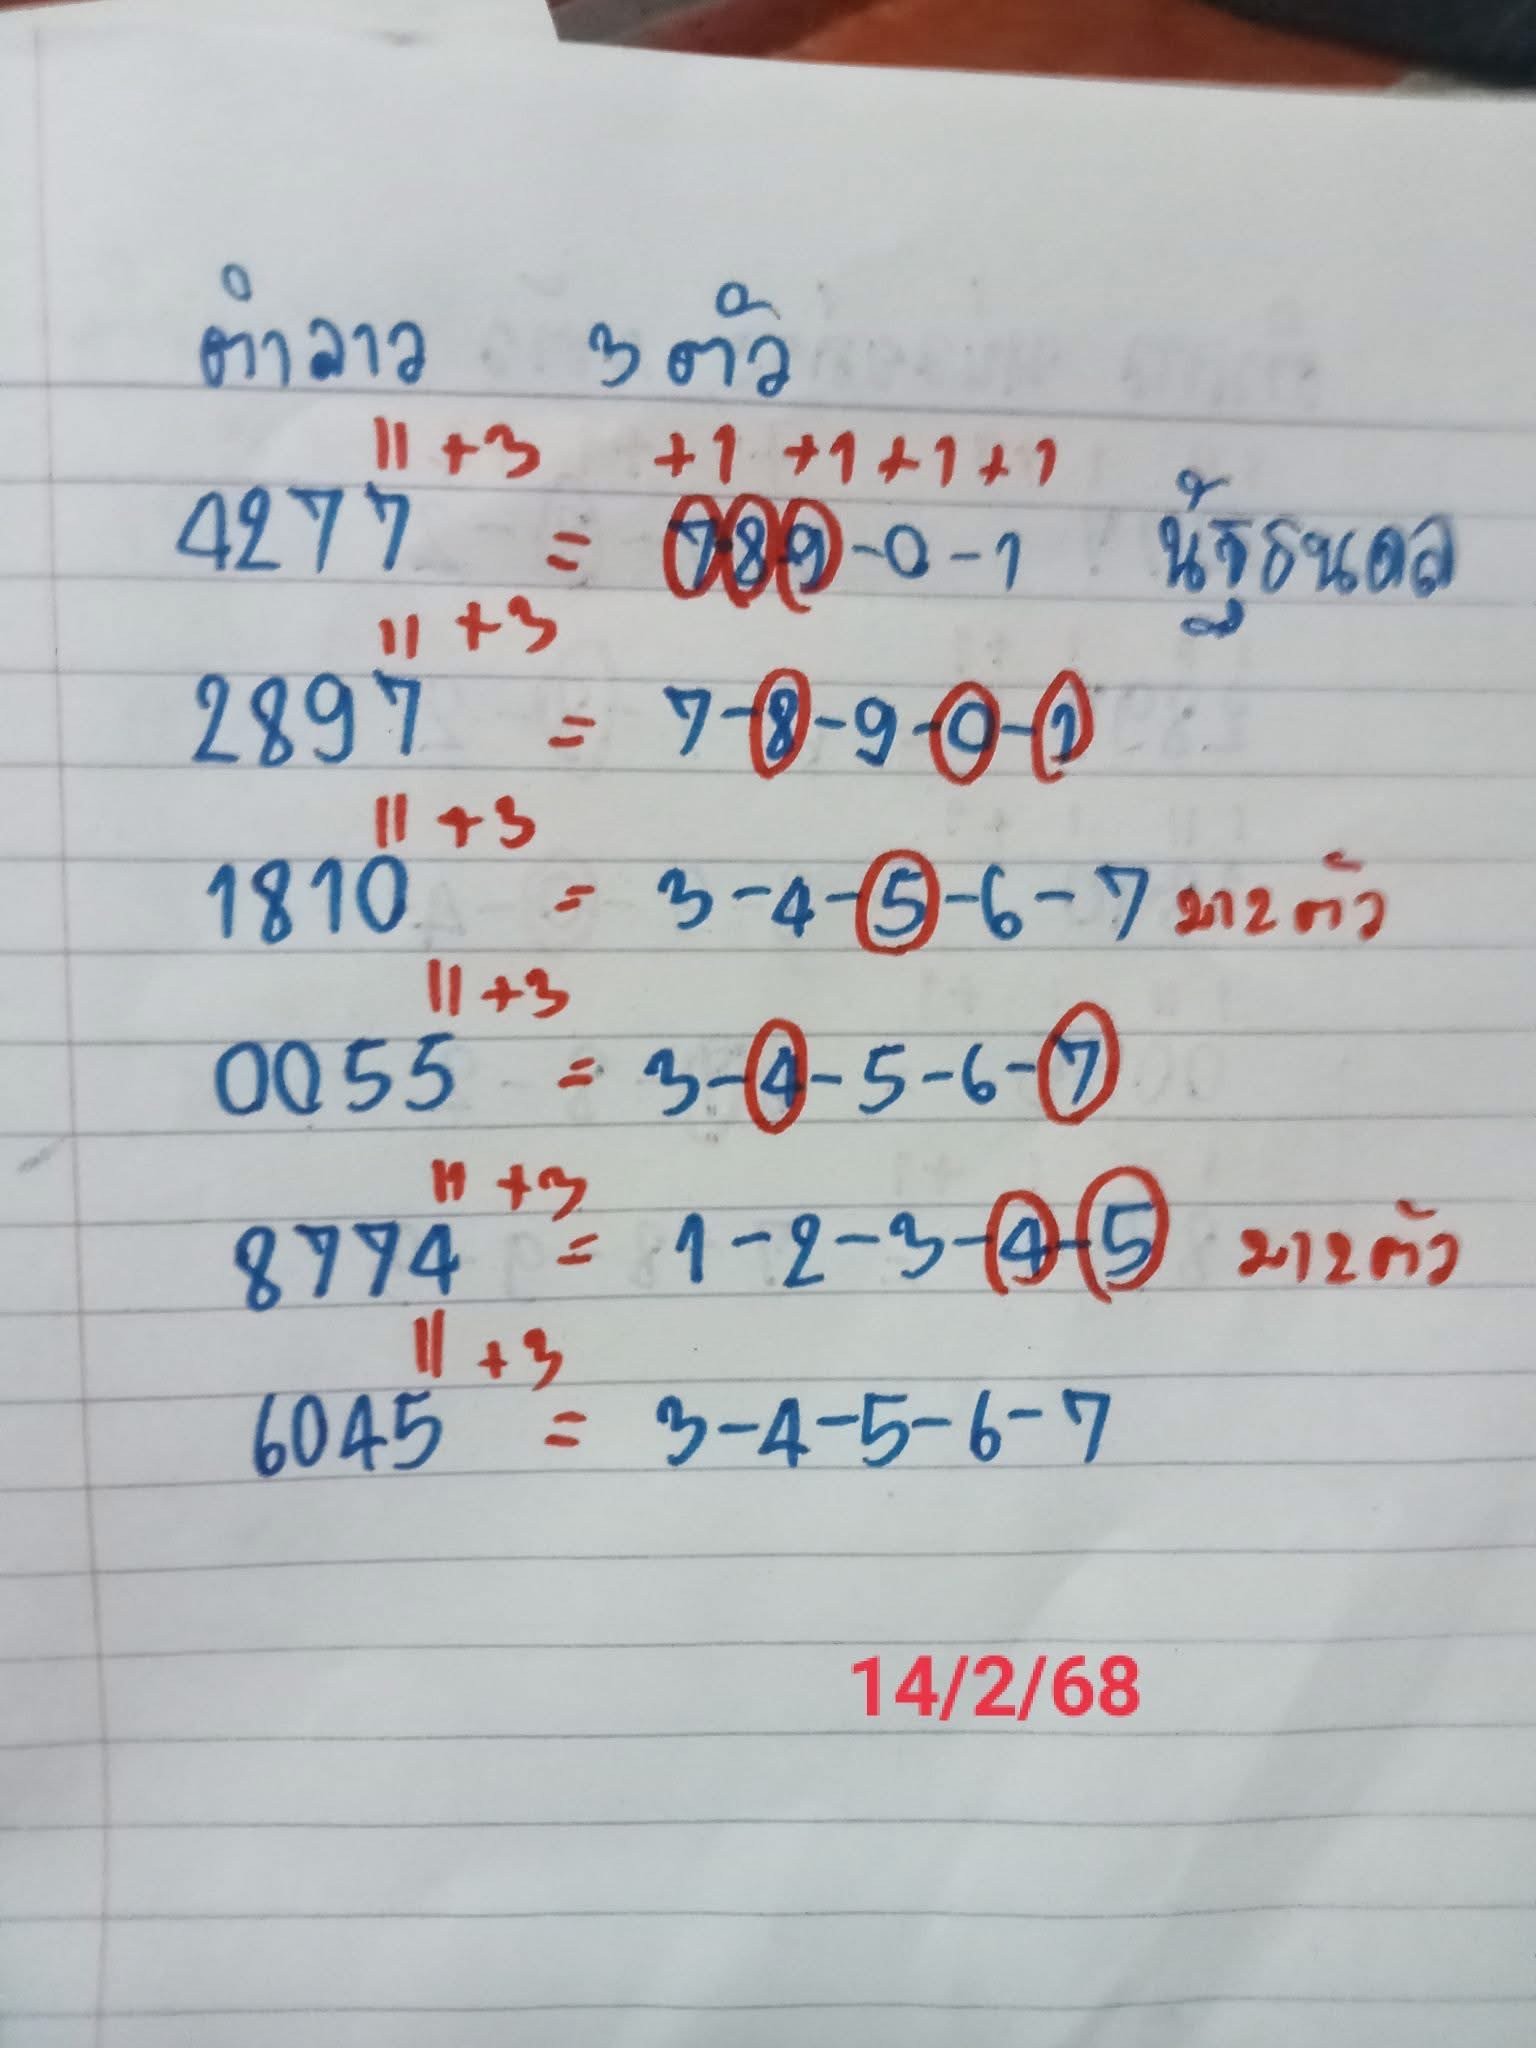 ตำลาว 3 ตัว
11 +3 +1 +1 +1 +1
4277 = 789-0-1 นั้ฐธนดล
11 +3
2897 = 7-8-9-0-1
11 +3
1810 = 3-4-5-6-7 มา2ตัว
11 +3
0055 = 3-4-5-6-7
11 +3
8774 = 1-2-3-4-5 มา2ตัว
11 +3
6045 = 3-4-5-6-7
14/2/68